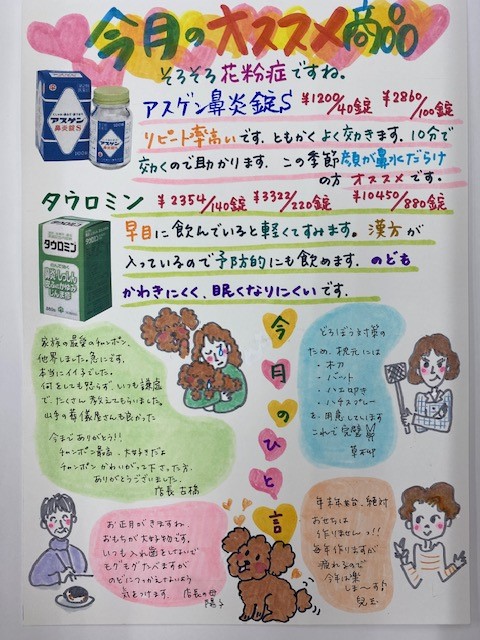 今月のオススメ商品
そろそろ花粉症ですね。
アスゲン鼻炎錠S ¥1200/40錠 ¥2860/100錠
リピート率高いです。ともかくよく効きます。10分で
効くので助かります。この季節顔が鼻水だらけ
の方 オススメです。
アスゲン
鼻炎錠S
タウロミン ¥2354/140錠 ¥3322/220錠 ¥10450/880錠
早目に飲んでいると軽くてすみます。漢方が
入っているので予防的にも飲めます。のども
かわきにくく、眠くなりにくいです。
タウロミン
今月のひと言
家族の最愛のチャンポン、
他界しました。急にです。
本当にイイ子でした。
何をしても怒らず、いつも謙虚
で、たくさん教えてもらいました。
山手の葬儀屋さんも良かった
今までありがとう!!
チャンポン最高、大好きだよ
チャンポン かわいがって下さった方、
ありがとうございました。
店長 古橋
どろぼう対策の
ため、枕元には
・木刀
・バット
・ハエ叩き
・ハチスプレー
を用意しています
これで完璧
お正月がきますね
おもちが大好物です。
いつも入れ歯をしないで
モグモグたべますが
のどにつっかえないよう
気をつけます。 店長の母
陽子
年末年始、絶対
おせちは
作りませんっ!!
毎年作りますが
疲れるので
今年は楽
しま〜す
児玉